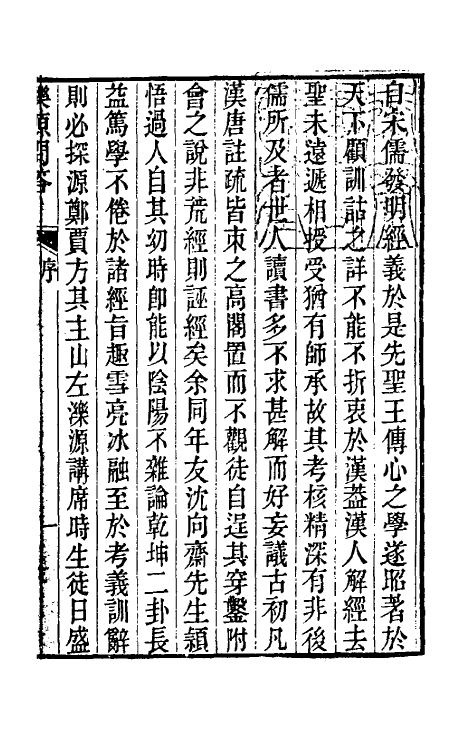 自宋儒發明經義於是先聖王傳心之學遂昭著於
天下顧訓詁之詳不能不折衷於漢葢漢人解經去
聖未遠遞相授受猶有師承故其考核精深有非後
儒所及者世人讀書多不求甚解而好妄議古初凡
漢唐註疏皆束之高閣置而不觀徒自逞其穿鑿附
會之說非荒經則誣經矣余同年友沈向齋先生穎
悟過人自其幼時即能以陰陽不雜論乾坤二卦長
益篤學不倦於諸經旨趣雪亮冰融至於考義訓辭
則必探源鄭賈方其主山左濼源講席時生徒日盛
濼源問答
序
一